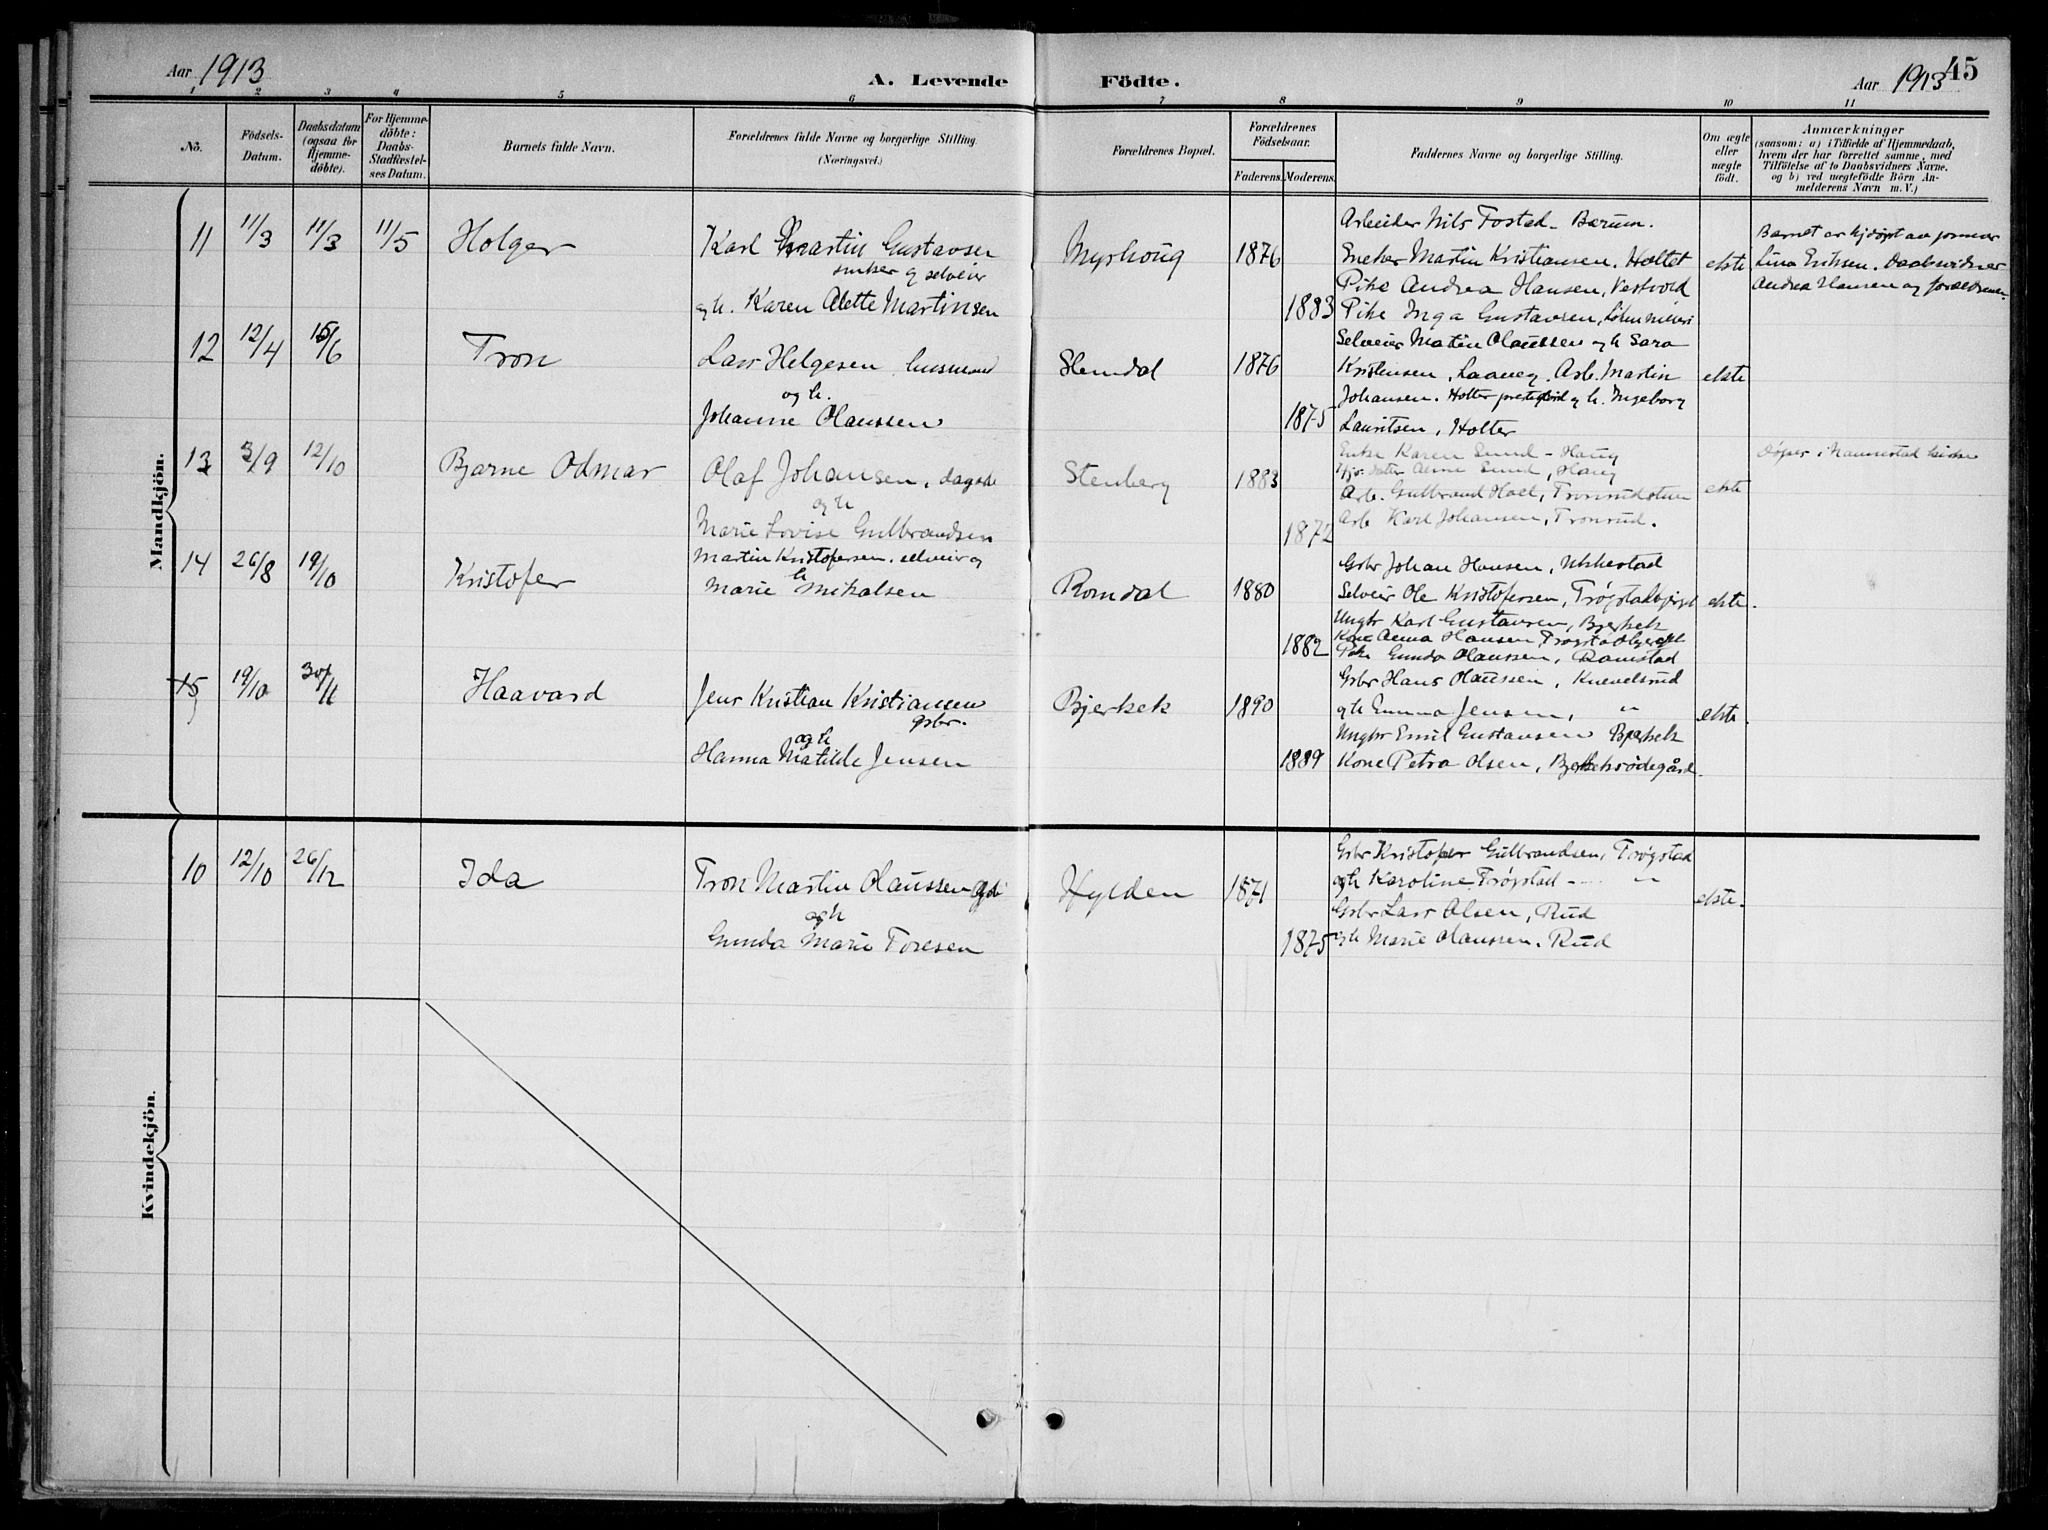 Aar 1913
A. Levende Födte.
Aar 1913
45
1 2 3 4 5 6 7 8 9 10 11
No.
Födsels-Datum.
Daabsdatum (ogsaa for Hjemmedöbte).
For Hjemmedöbte: Daabs-Stadfæstelses Datum.
Barnets fulde Navn.
Forældrenes fulde Navne og borgerlige Stilling. (Næringsvei.)
Forældrenes Bopæl.
Forældrenes Födselsaar.
Faderens. Moderens.
Faddernes Navne og borgerlige Stilling.
Om ægte eller uægte födt.
Anmærkninger
(saasom: a) i Tilfælde af Hjemmedaab,
hvem der har forrettet samme, med
Tilföielse af to Daabsvidners Navne,
og b) ved uægtefödte Börn An-
melderens Navn m. V.)
Mandkjön.
11 11/3 11/3 11/5 Holger
Karl Martin Gustavsen
snekker og selveier
og h. Karen Alette Martinsen
Myrhoug 1876 1883
Arbeider Nils Fostad - Bærum.
Snekker Martin Kristiansen, Holtet
Pike Andrea Hansen, Vestvold
Pike Inga Gustavsen,
ekte
Barnet er hjdøpt av jormor
Lina Eriksen. Daabsvidner
Andrea Hansen og forældrene
12 12/4 15/6 Tron
Lars Helgesen husmand
og h.
Johanne Olaussen
Slemdal 1876 1875
Selveier Martin Olaussen og h. Sara
Kristensen, Laaneg. Arb. Martin
Johansen. Holter og h. Ingeborg
Lauritsen, Holter
ekte
13 3/9 12/10 Bjarne Odmar
Olaf Johansen, dagarb
og h
Marie Lovise Gulbrandsen
Stenberg 1883 1872
Enke Karen Sund - Haug
datter Anne Sund, Haug
Arb. Gulbrand Hoel, Tronrudstuen
Arb Karl Johansen, Tronrud.
ekte
Døpt i Nannestad kirke
14 26/8 19/10 Kristofer
Martin Kristofersen, selveier og
h
Marie Mikalsen
Romdal 1880 1882
Gbr Johan Hansen, Ukkestad
Selveier Ole Kristofersen, Trøgstadbjerget
Ungkr Karl Gustavsen, Bjerkek
Kone Anna Hansen, Trøgstadbjerget
Pike Gunda Olaussen, Ramstad
ekte.
15 19/10 30/11 Haavard
Jens Kristian Kristiansen
gsbr.
og h
Hanna Matilde Jensen
Bjerkek 1890 1889
Gsbr Hans Olaussen, Knevelsrud
og h Emma Jensen, "
Ungkr Emil Gustavsen Bjerkek
Kone Petra Olsen, Bjerkekødegård.
ekte.
Kvindekjön.
10 12/10 26/12 Ida
Tron Martin Olaussen
og h
Gunda Marie Toresen
Hylden 1871 1875
Gsbr Kristofer Gulbrandsen, Trøgstad
og h Karoline Trøgstad - "
Gsbr Lars Olsen, Rud
og h Marie Olaussen. Rud
ekte.